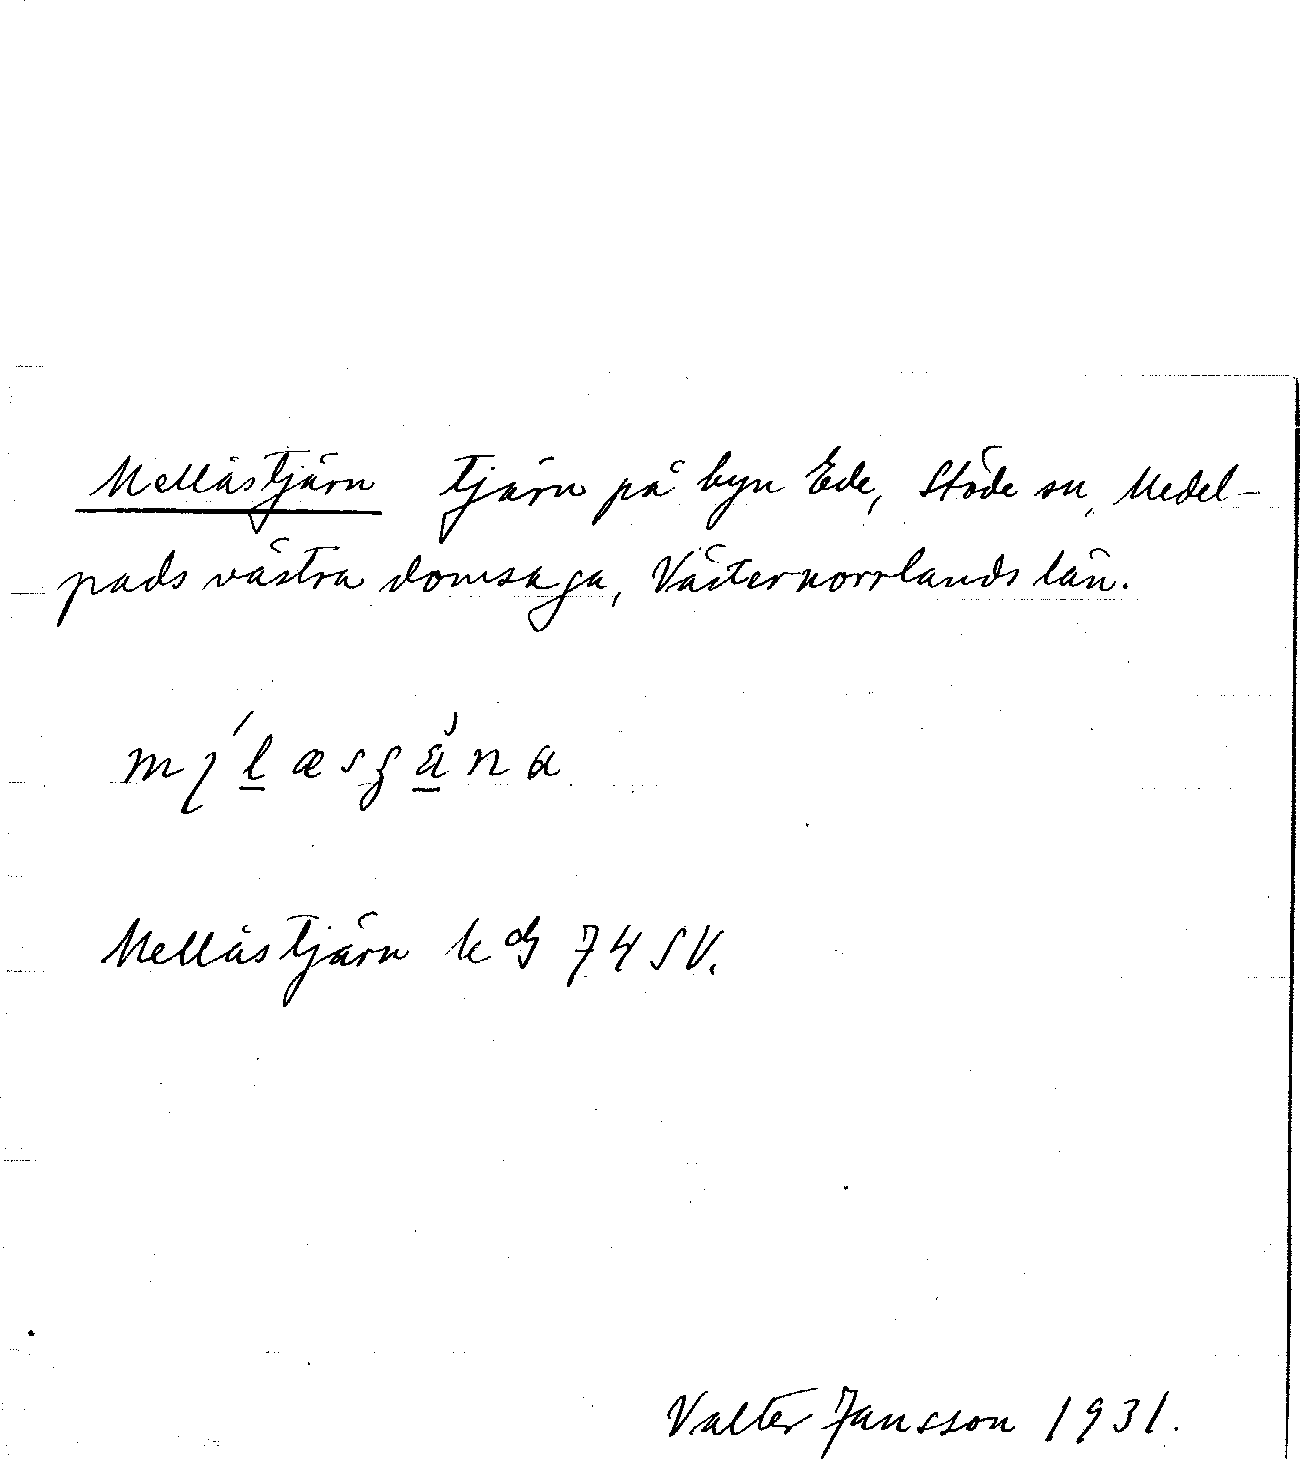 Mellåstjärn tjärn på byn Ede, Stöde sn, Medel-
pads västra domsaga, Västernorrlands län.
Mellåstjärn k db 74 SV.
Valter Jansson 1931.